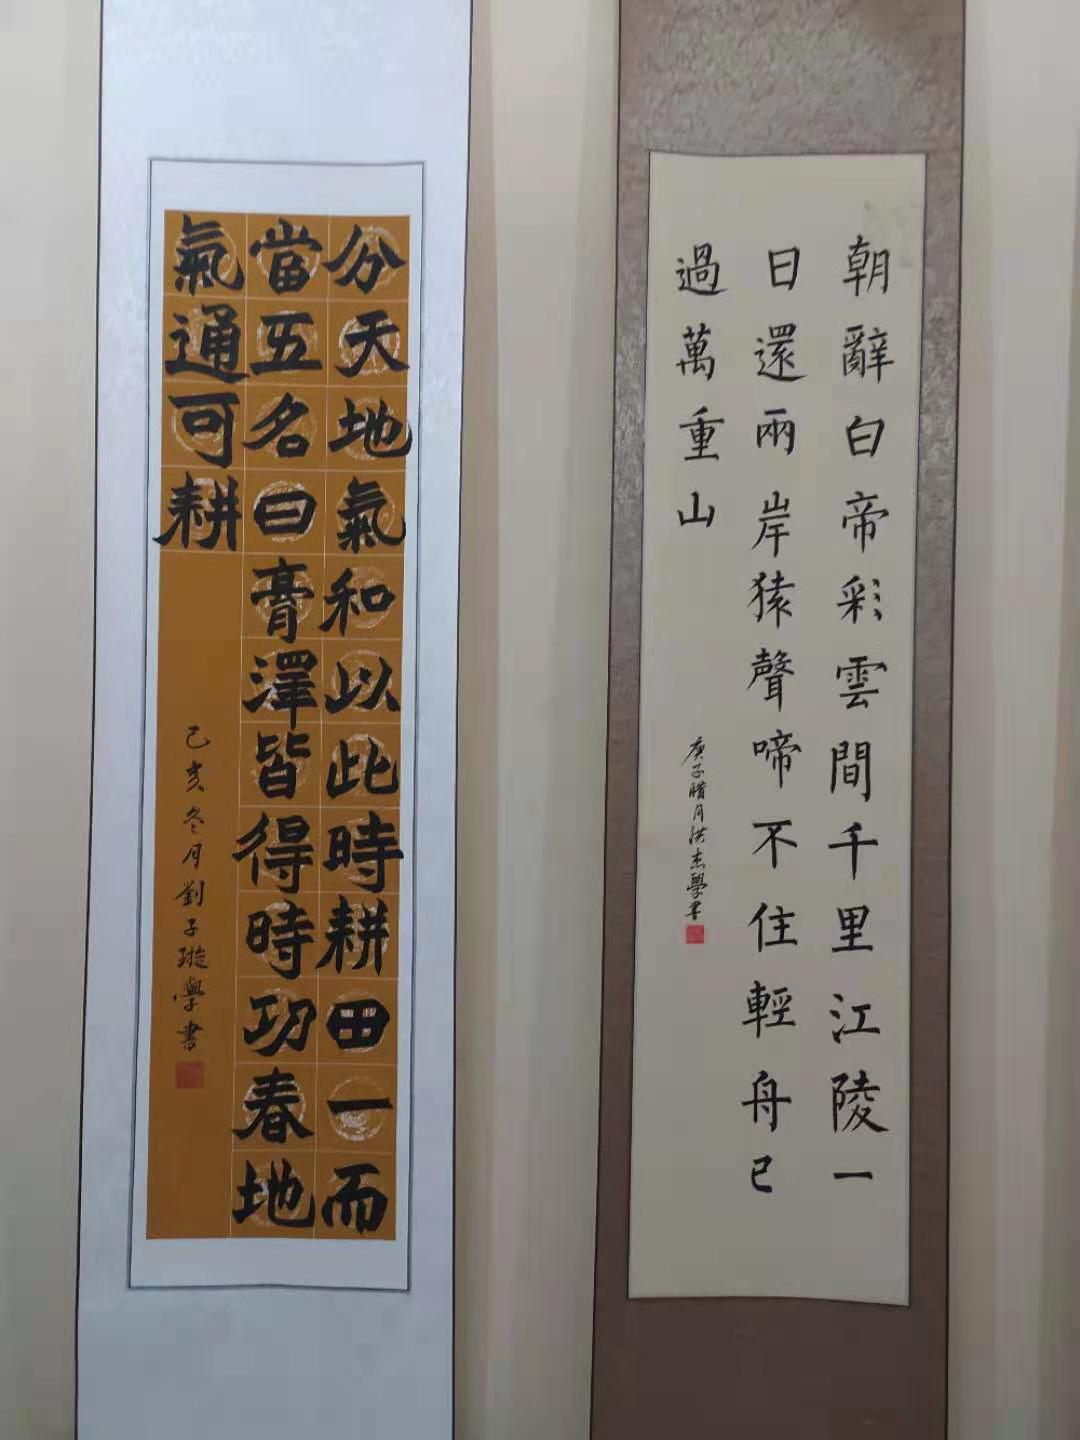 朝辭白帝彩雲間千里江陵一
日還兩岸猿聲啼不住輕舟已
過萬重山
庚子腊月洪志學書
分天地氣和以此時耕田一而
當五名曰膏澤皆得時功春地
氣通可耕
己亥冬月劉子璇學書